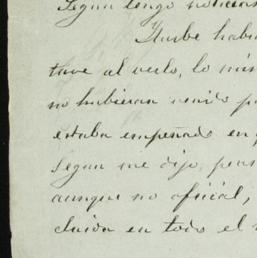 Segun tengo noticias
Yturbe habi
tuve al verlo, lo mis
no hubieran venido p
estaba empeñado en q
segun me dijo, pens
aunque no oficial,
cluida en todo el